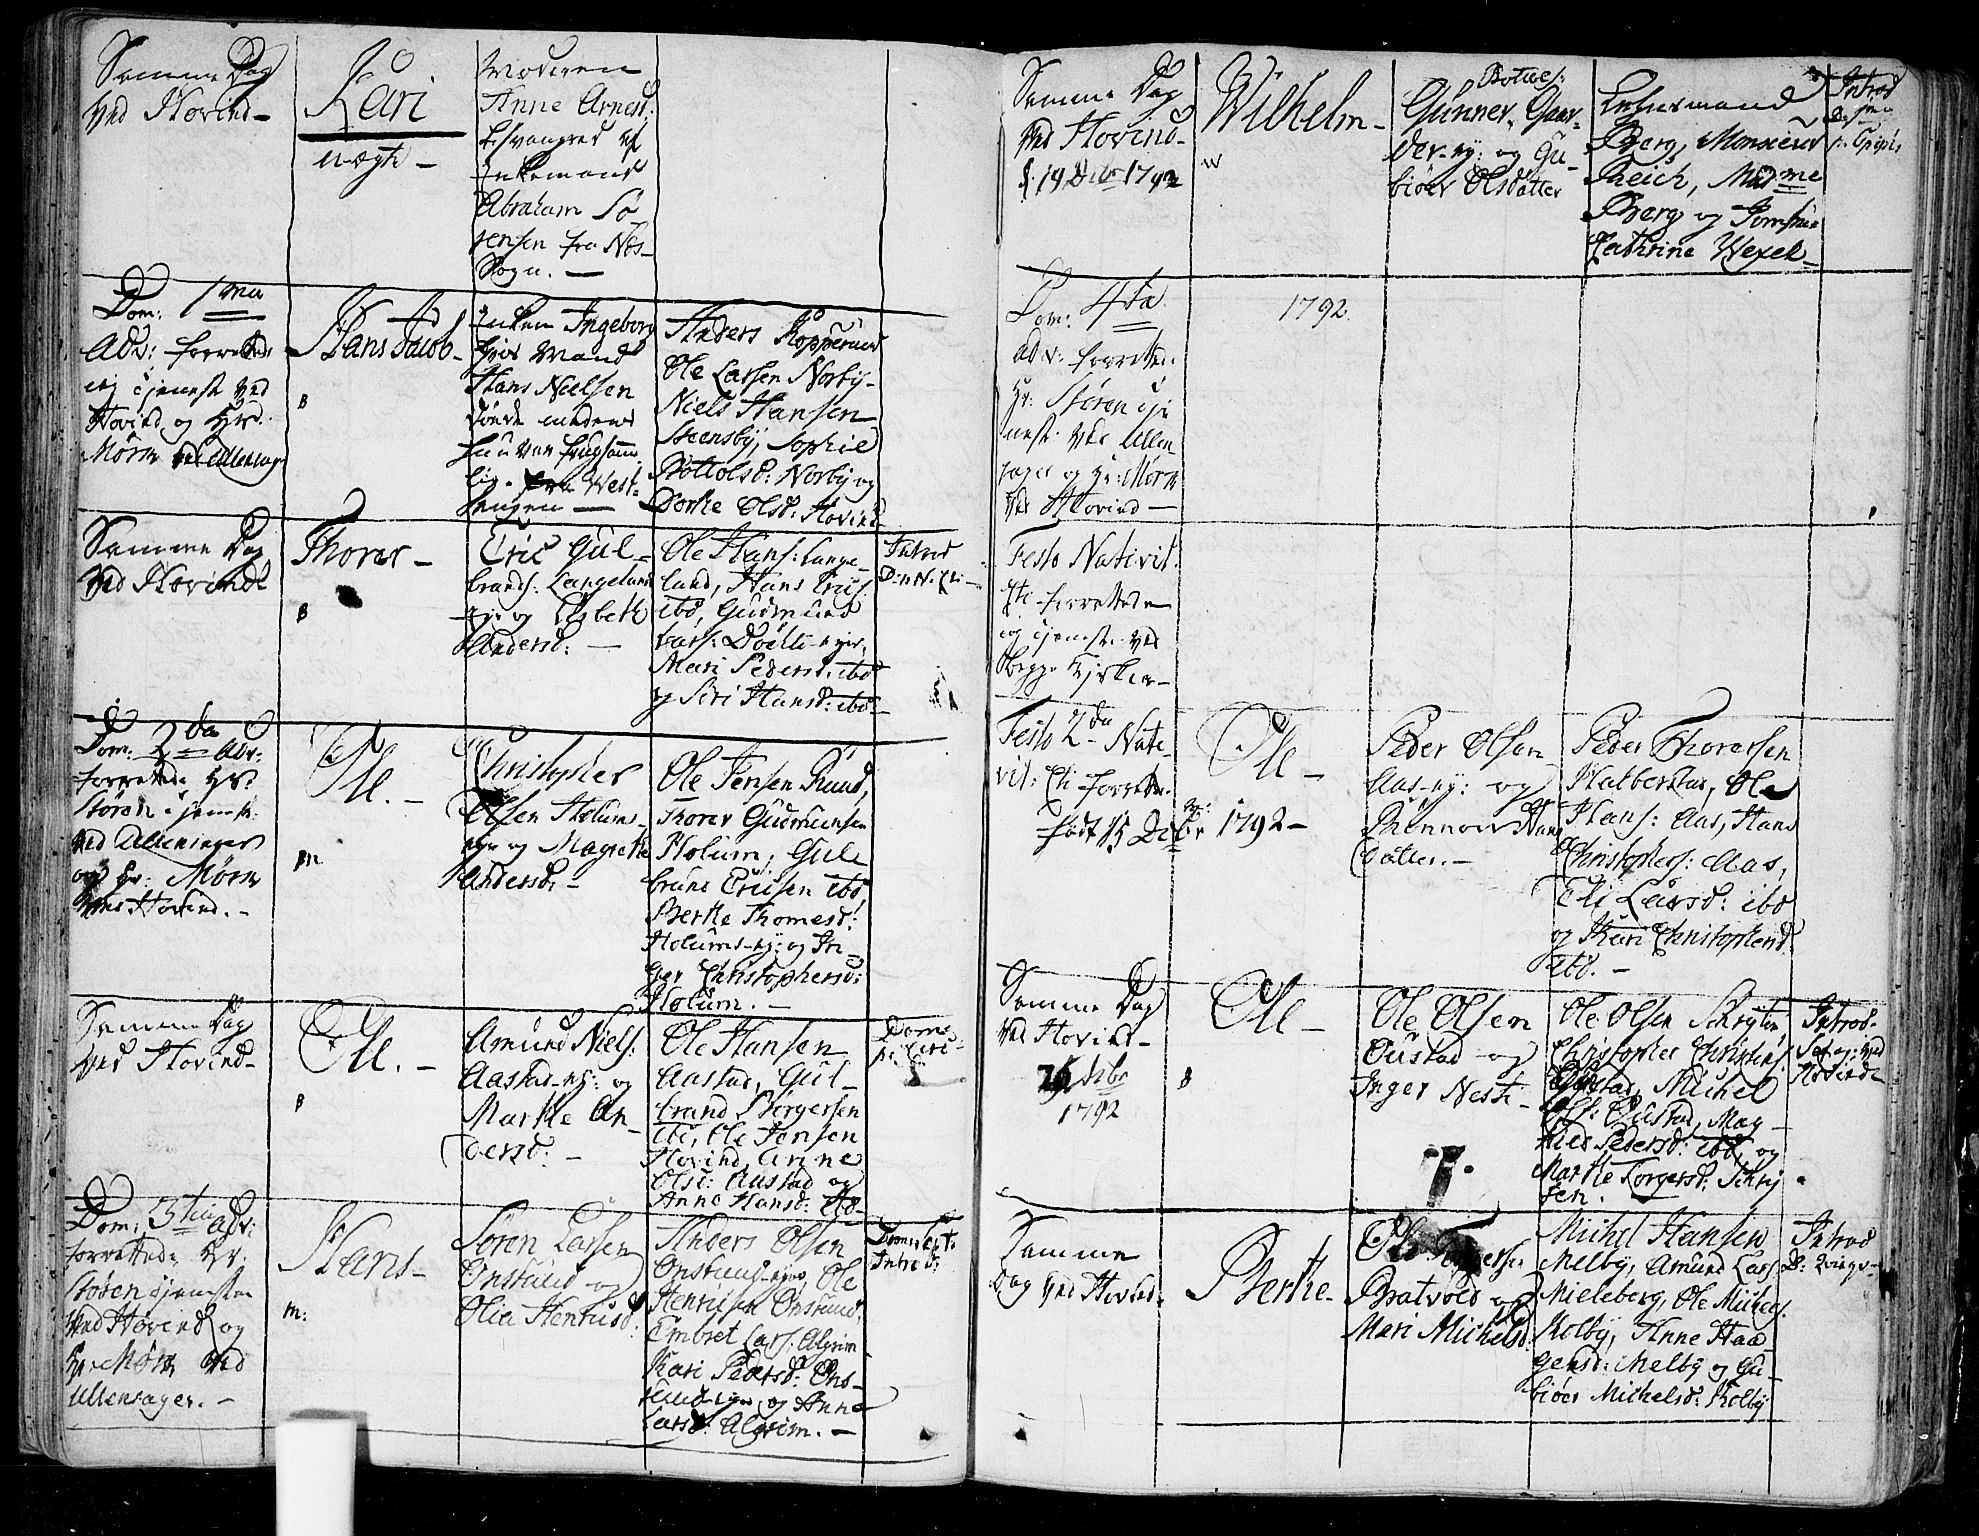 Samme Dag
ved Hovind –
Kari
uægte –
Moderen
Anne Arnesd:
besvangred af
Enkemand
Abraham Sö-
rensen fra Næs
Sogn. –
Dom: 1ma
Adv: forrettede
ieg Tjenest ved
Hovind og Hr.
Mörch ved Ullensager
Hans Jacob –
B
Enken Ingeborg
hvis Mand
Hans Nielsen
döde medens
hun var frugtsom̄e
lig. fra West-
engen –
Anders Kopperud
Ole Larsen Norby –
Niels Hansen
Steensby, Sophie
Bottolsd: Norby og
Dorthe Olsd: Hovind
Samme Dag
ved Hovind
Thorer –
B
Eric Gul-
brands: Langeland
eje og Lisbeth
Andersd: –
Ole Hans: Lange-
land, Hans Erics:
ibd, Gudmund
Lars: Döhli-ejer,
Mari Pedersd: ibd
og Siri Hansd: ibd –
Introd
D: N.
Dom: 2da Adv:
forrettede Hr:
Stören Tjenest
ved Ullensager
og Hr: Mörch
ved Hovind. –
Ole. –
m
Christopher
Olsen Holums-
eje og Magrethe
Andersd: –
Ole Jensen Ruud,
Thorer Gudmunsen
Holum, Gul-
brand Ericsen ibd
Berthe Thomesd:
Holums-ej: og In-
ger Christophersd:
Holum. –
Samme Dag
ved Hovind –
Ole. –
B
Amund Niels:
Aastad-ej: og
Marthe An-
dersd: –
Ole Hansen
Aastad, Gul-
brand Börgersen
ibd, Ole Jensen
Hovind, Anne
Olsd: Aastad og
Anne Hansd: ibd –
Dom:
Dom: 3tia Adv:
forrettede Hr.
Stören Tjenesten
ved Hovind og
Hr: Mörch ved
Ullensager. –
Hans –
m:
Sören Larsen
Onsrud og
Olia Henricsd:
Anders Olsen
Onsrud-ejer, Ole
Henricsen Onsrud,
Embret Lars: Algrim
Kari Pedersd: Ons-
rud-eje og Anne
Larsd: Algrim. –
Dom: Sept.
Introd:
Samme Dag
ved Hovind –
f: 19 Decbr 1792
Wilhelm –
w
Botnes:
Gunner Gaar-
der-ej: og Gu-
biöer Olsdatter
Lehnsmand
Berg, Monsieur
Reich, Madme
Berg og Jomfrue
Cathrine Wexel –
Introd
Dom:
p: Epiph:
Dom: 4ta
Adv: forrettede
Hr: Stören Tje-
nest ved Ullen-
sager og Hr: Mörch
ved Hovind –
1792
Festo Nativit:
Xti forrettede
ieg Tjenest ved
begge Kirker –
Festo 2da Nati-
vit: Xti forrettede
född 15 Decbr 1792 –
Ole –
m:
Peder Olsen
Aas-ej: og
Rönnow Hans
datter. –
Peder Thorersen
Halberstad, Ole
Hans: Aas, Hans
Christophers: Aas,
Eli Larsd: ibd
og Kari Christophersd:
ibd. –
Samme Dag
ved Hovind –
26 decbr
1792
Ole –
B
Ole Olsen
Oustad og
Inger Nests –
Ole Olsen Skryten
Christopher Christens:
Oustad, Michel
Ols: Oustad, Mag-
nhild Pedersd: ibd, og
Marthe Torgersd: Skry
ten.
Introd.
Sept: ved
Hovind
7.
Samme
Dag ved Hovind –
Berthe –
Ole
Bratvold og
Mari Michelsd:
Michel Hansen
Melby, Amund Lars:
Mieleberg, Ole Michels:
Kolby, Anne Haa-
gensd: Melby og Gu-
biöer Michelsd: Kolby
Introd
D: Qvinqv –